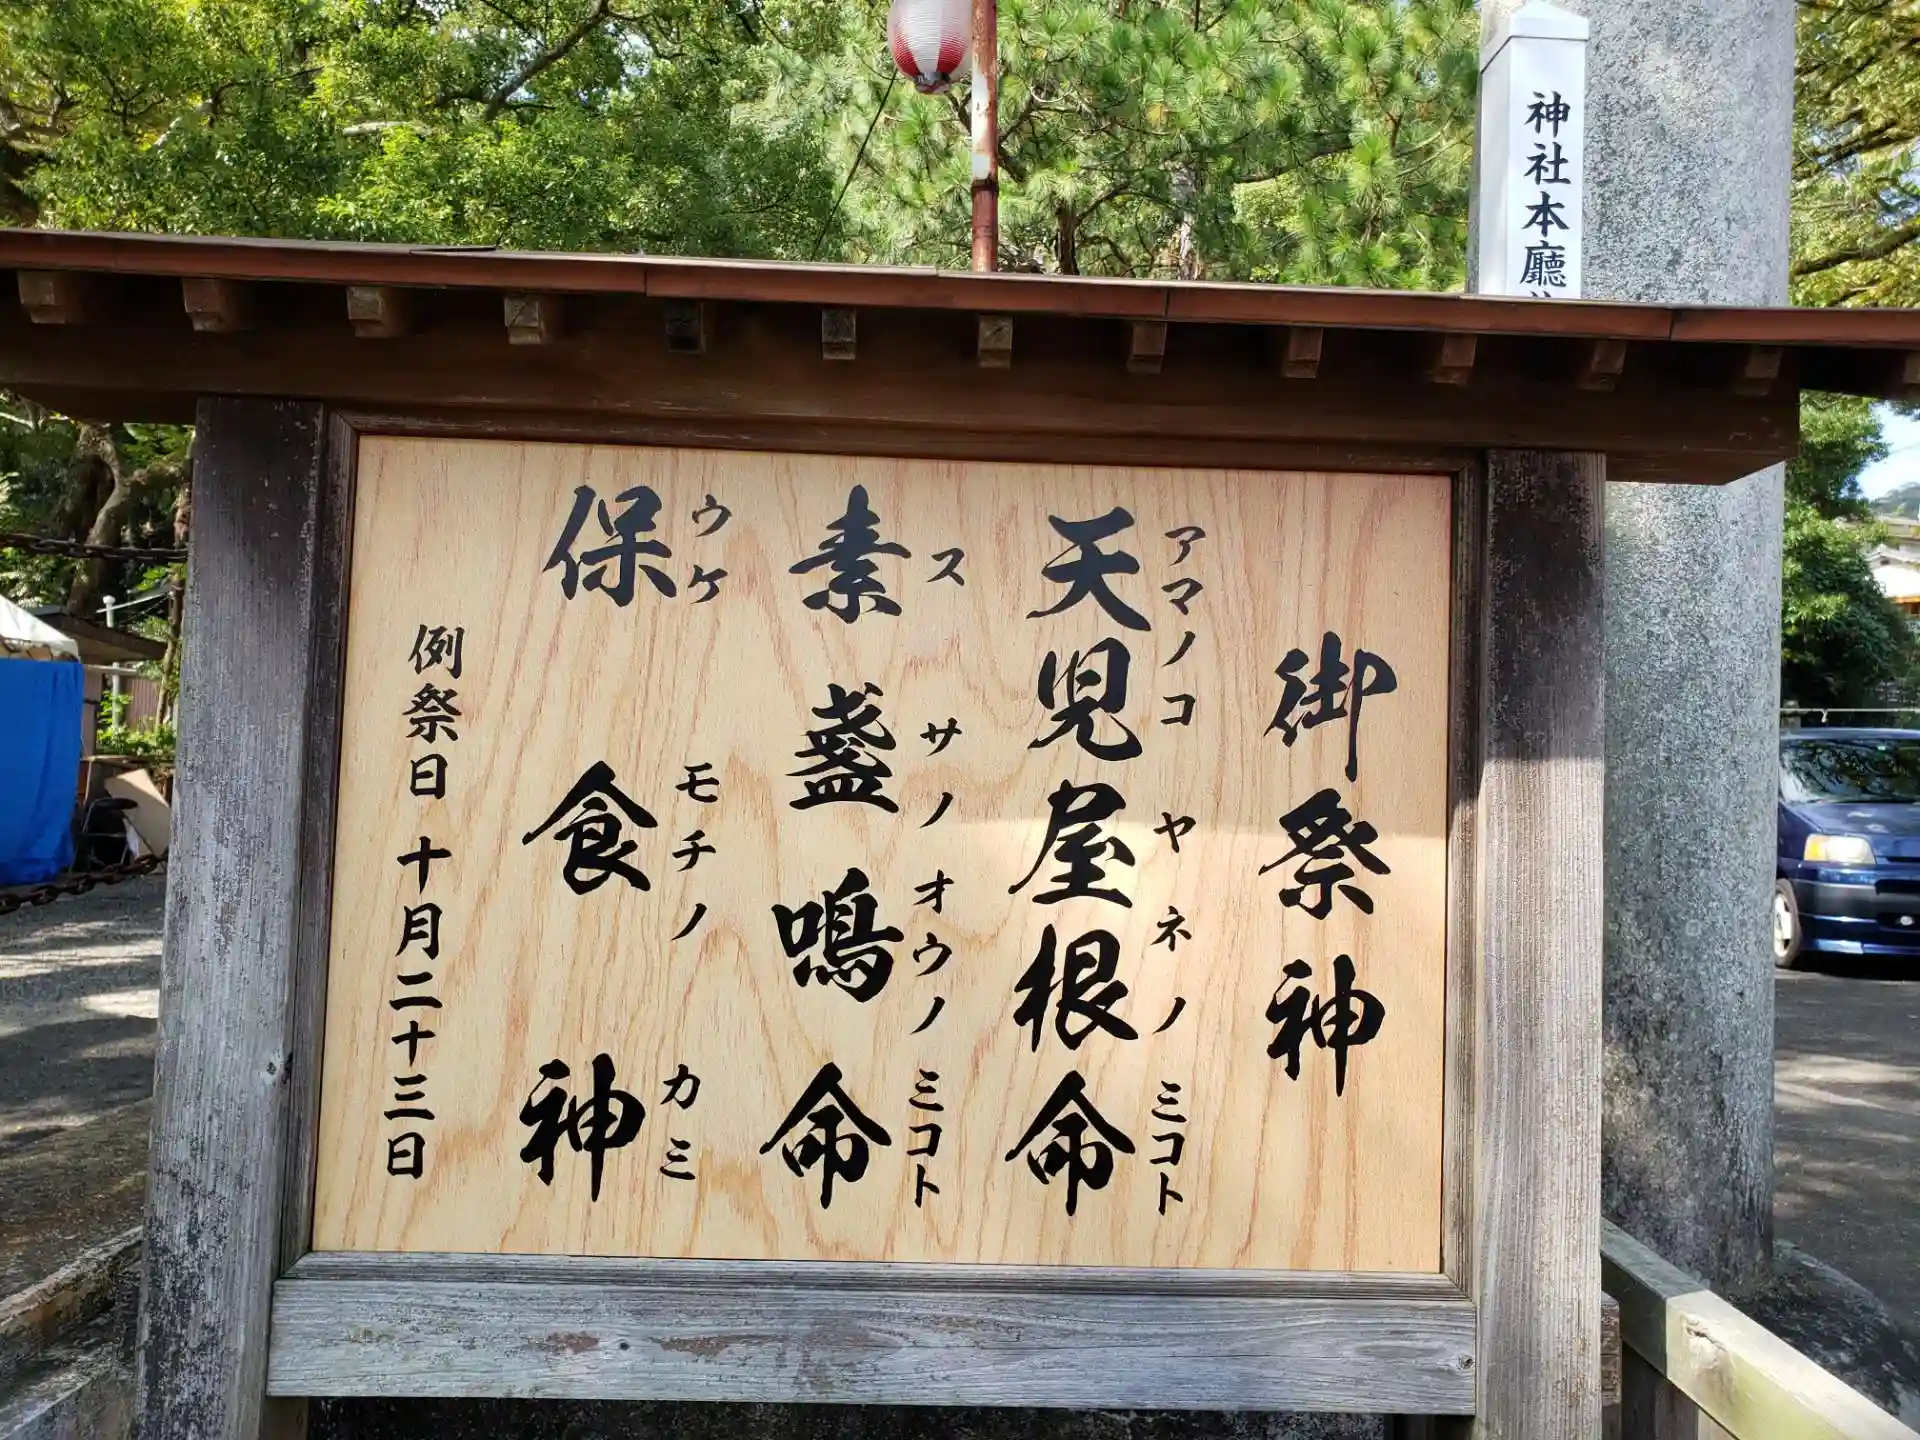 神社本廳
御祭神
天児屋根命
アマノコヤネノミコト
素盞鳴命
スサノオウノミコト
保食神
ウケモチノカミ
例祭日 十月二十三日